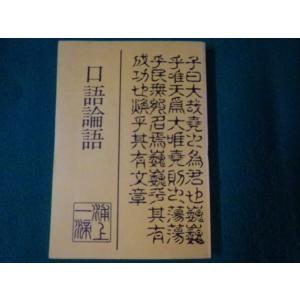 子曰大哉堯之為君也巍巍
乎唯天為大唯堯則之蕩蕩
乎民無能名焉巍巍乎其有
成功也煥乎其有文章
口語論語
浦上
一